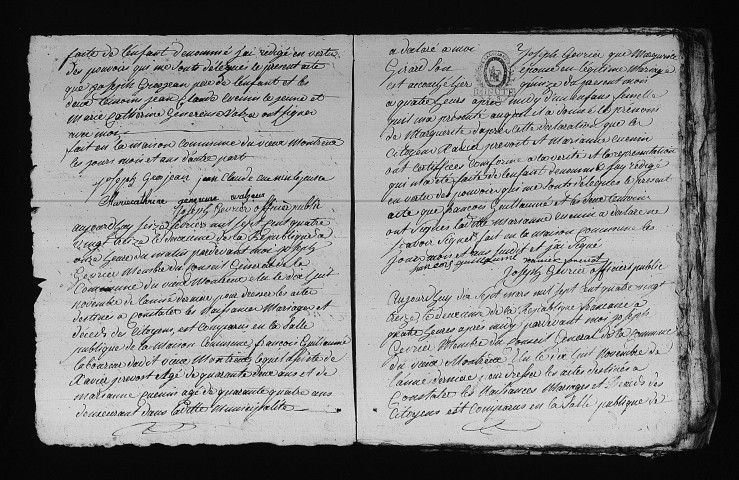 facte de l'enfant denommé j'ai redigé en vertu
des pouvoir qui me sonts delequés le present acte
que joseph Grosjean pere de l'enfant et les
deux temoins jean Claude le jeune et
Marie Catherine ont signer
avec moi
fait en la maison commune du vieux Montreux
les jours mois et ans d'autre part
joseph Grosjean jean Claude le jeune
Mariecathrine
joseph Fevrier officie public
aujourdhuy seize fevrier mil sept cent quatre
vingt treize deuxieme de la République à
onze heure du matin pardevant moi joseph
Fevrier Membre du Conseil General de la
Commune du vieux Montreux elu le dix huit
novembre de l'année derniere pour dresser les actes
destinés a constater les Naissances Mariages et
décéds des Citoyens est comparus en la Salle
publique de la Maison Commune françois Guillaume
laboureur du dit vieux Montreux lequel assisté de
Xavier prevost agé de quarante deux ans et de
marianne agé de quarante quatre ans
demeurant dans la ditte Municipalité
a declaré a moi joseph fevrier que Marguerite
Girard son épouse en légitime Mariage
est accouchée hier quinze du present mois
a quatre heurs aprés midy d'un Enfans femelle
qui ma presenté auquel et a donné le prénoms
de Marguerite daprés cette déclaration que le
Citoyens Xavier prevost et Marianne
ont certifiées conforme a la verité et la représentation
qui m'a été faite de l'enfant denommé j'ay rédigé
en vertu des pouvoir qui me sonts delequés le present
acte que francois Guillaume et
ont Signés la ditte marianne a declaré ne
scavoir Signer fait en la maison commune les
jour mois et ans susdit et j'ai Signé
francois guillaume xavier prevost
joseph fevrier officiers public
Aujourdhuy dix sept mars mil sept cent quatre vingt
treize le deuxieme de la République francoise a
quatre heurs aprés midy pardevant moi joseph
Fevrier Membre du Conseil General de la Commune
du vieux Montreux Elu le dix huit Novembre de
l'année derniere pour dresser les actes destinés a
Constater les Naissances Mariages et Décéds des
Citoyens est Comparus en la Salle publique de